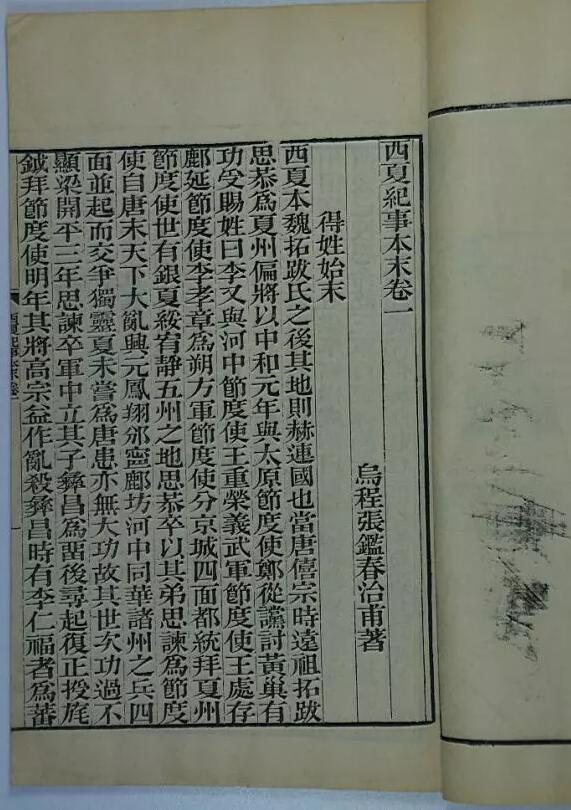 西夏紀事本末卷一
烏程張鑑春治甫著
得姓始末
西夏本魏拓跋氏之後其地則赫連國也當唐僖宗時遠祖拓跋
思恭爲夏州偏將以中和元年與太原節度使鄭從讜討黃巢有
功受賜姓曰李又與河中節度使王重榮義武軍節度使王處存
鄜延節度使李孝章爲朔方軍節度使分京城四面都統拜夏州
節度使世有銀夏綏宥靜五州之地思恭卒以其弟思諫爲節度
使自唐末天下大亂興元鳳翔邠寧鄜坊河中同華諸州之兵四
面並起而交爭獨靈夏未嘗爲唐患亦無大功故其世次功過不
顯梁開平二年思諫卒軍中立其子彝昌爲畱後尋起復正授旄
鉞拜節度使明年其將高宗益作亂殺彝昌時有李仁福者爲蕃